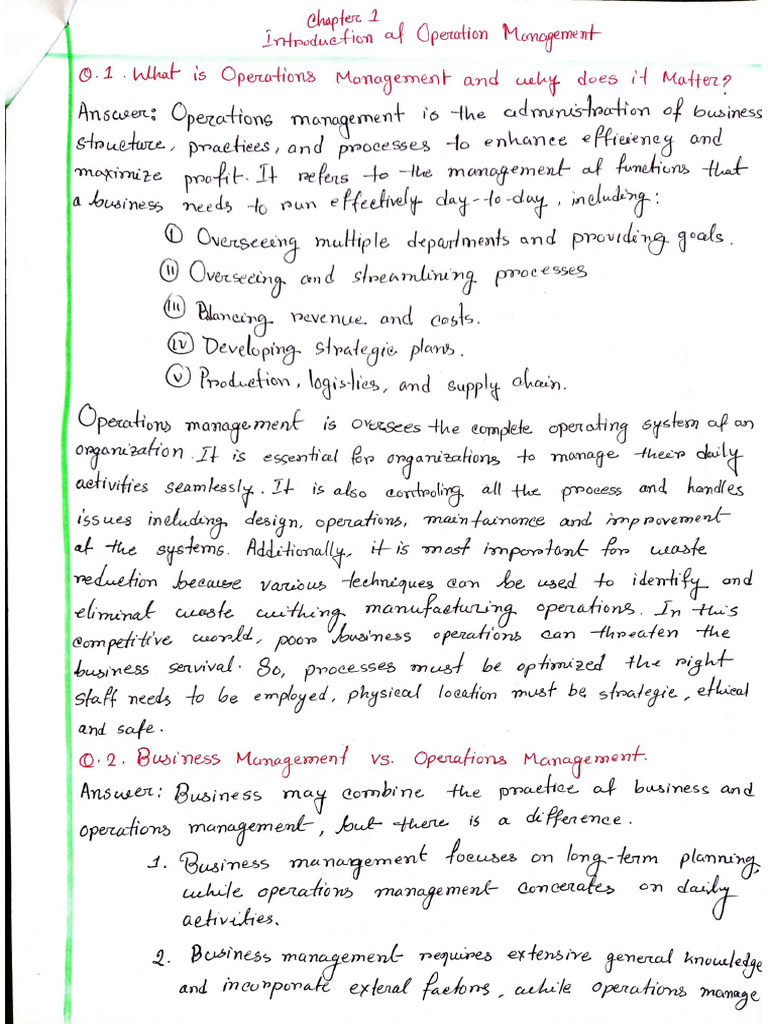 Chapter 1
Introduction of Operation Management
Q.1. What is Operations Management and why does it Matter?
Answer: Operations management is the administration of business
structure, practices, and processes to enhance efficiency and
maximize profit. It refers to the management of functions that
a business needs to run effectively day-to-day, including:
(i) Overseeing multiple departments and providing goals.
(ii) Overseeing and streamlining processes
(iii) Balancing revenue and costs.
(iv) Developing strategic plans.
(v) Production, logistics, and supply chain.
Operations management is oversees the complete operating system of an
organization. It is essential for organizations to manage their daily
activities seamlessly. It is also controling all the process and handles
issues including design, operations, maintainance and improvement
of the systems. Additionally, it is most important for waste
reduction because various techniques can be used to identify and
eliminat waste withing manufacturing operations. In this
competitive world, poor business operations can threaten the
business servival. So, processes must be optimized the right
staff needs to be employed, physical location must be strategic, ethical
and safe.
Q.2. Business Management vs. Operations Management.
Answer: Business may combine the practice of business and
operations management, but there is a difference.
1. Business management focuses on long-term planning,
while operations management concerates on daily
activities.
2. Business management requires extensive general knowledge
and incorporate exteral factors, while operations manage